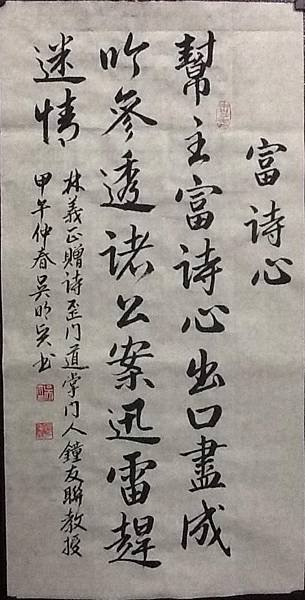 富诗心
幫主富诗心出口盡成
吟參透諸公案迅雷趕
迷情
林義正贈诗至门道掌门人鐘友聯教授
甲午仲春吳明昊书